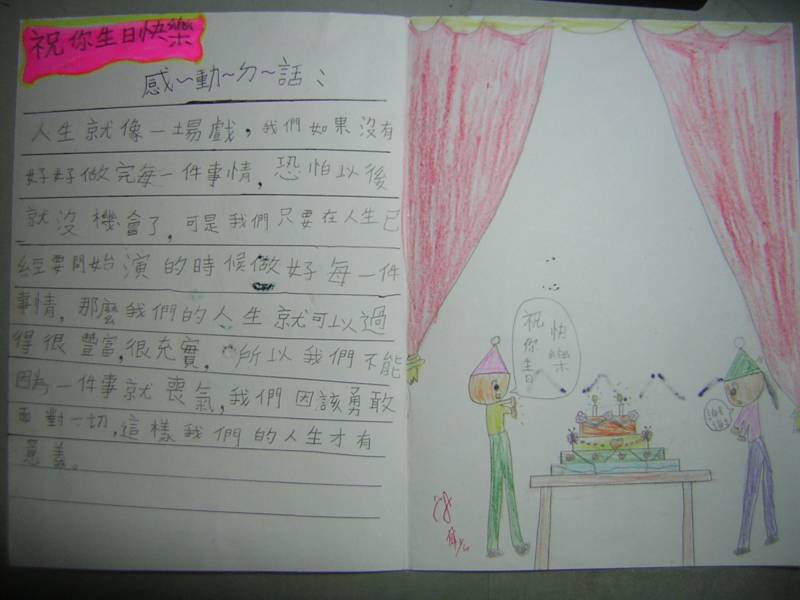 祝你生日快樂
感~動~ㄉ~話：
人生就像一場戲，我們如果沒有
好好做完每一件事情，恐怕以後
就沒機會了，可是我們只要在人生已
經要開始演的時候做好每一件
事情，那麼我們的人生就可以過
得很豐富，很充實，所以我們不能
因為一件事就喪氣，我們因該勇敢
面對一切，這樣我們的人生才有
意義。
祝你生日
快樂